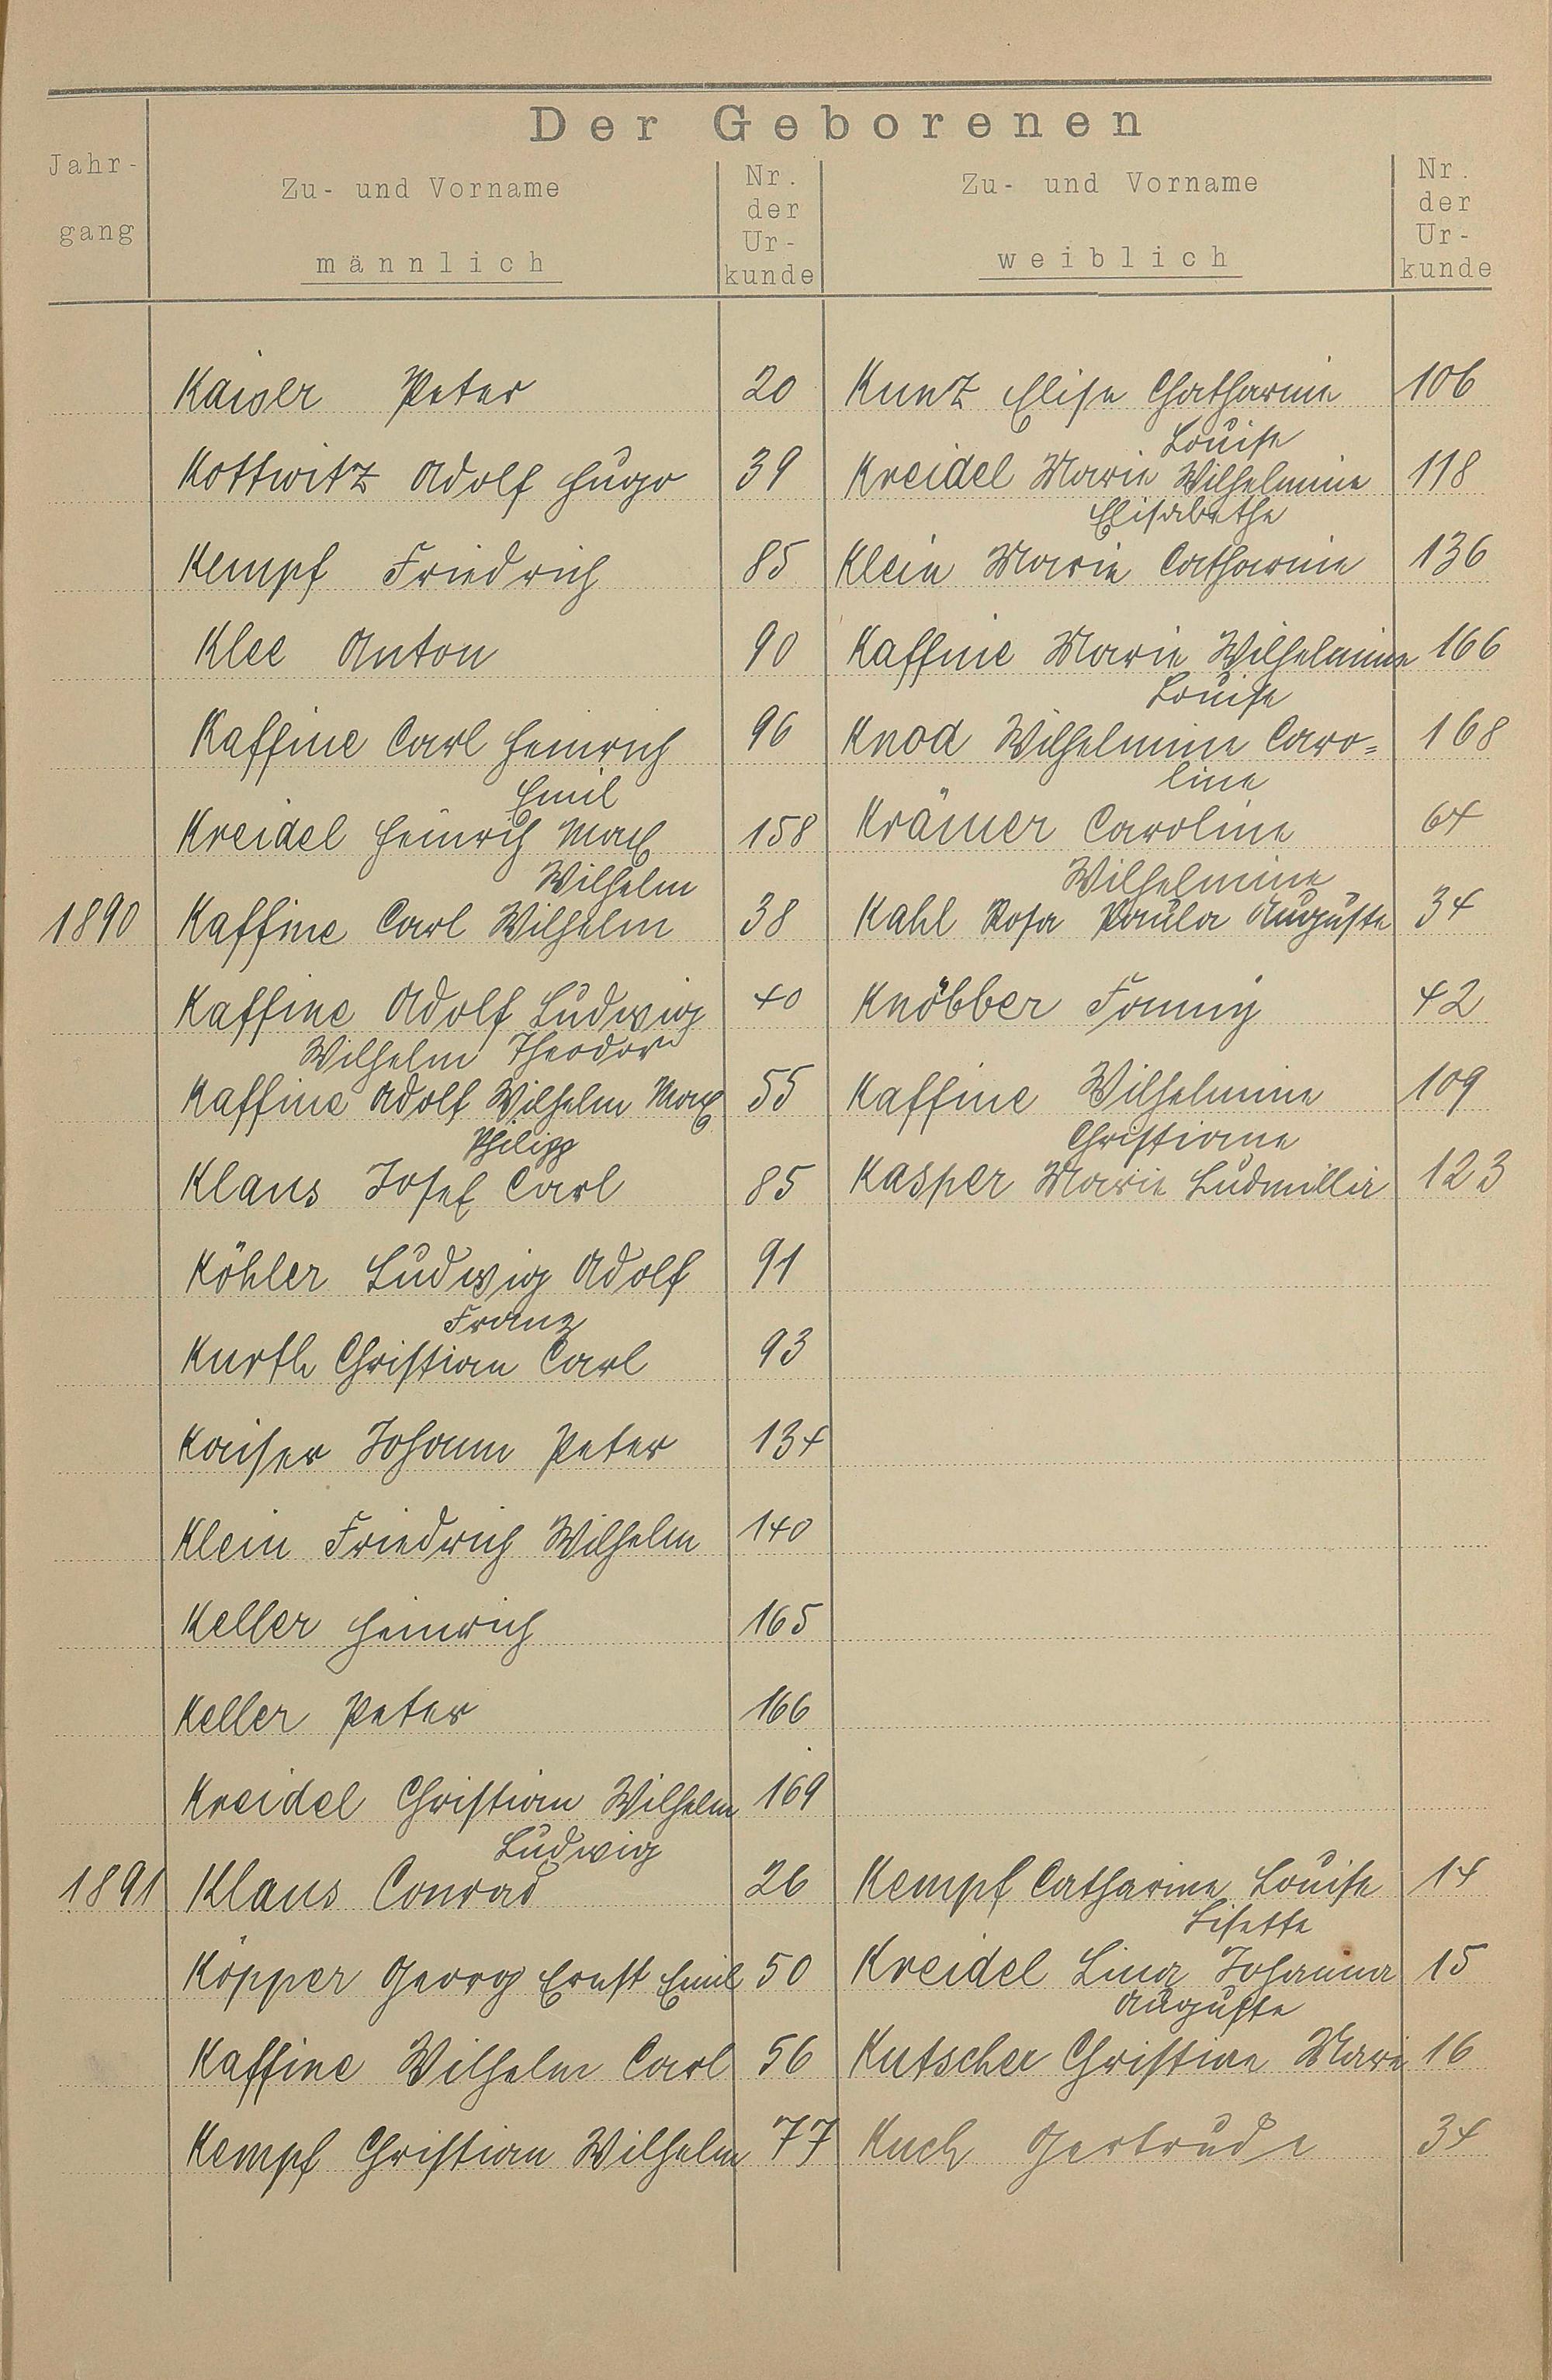 Der Geborenen
Jahr-
gang
Zu- und Vorname
männlich
Nr.
der
Ur-
kunde
Zu- und Vorname
weiblich
Nr.
der
Ur-
kunde
Kaiser Peter 20 Kunz Elise Chatharine 106
Louise
Kottwitz Adolf Hugo 39 Kreidel Marie Wilhelmine 118
Elisabethe
Kempf Friedrich 85 Klein Marie Catharine 136
Klee Anton 90 Kaffine Marie Wilhelmine 166
Louise
Kaffine Carl Heinrich 96 Knod Wilhelmine Caro= 168
Emil line
Kreidel Heinrich Max 158 Krämer Caroline 64
Wilhelm Wilhelmine
1890 Kaffine Carl Wilhelm 38 Kahl Rosa Paula Auguste 34
Kaffine Adolf Ludwig 40 Knöbber Fanny 42
Wilhelm Theodor
Kaffine Adolf Wilhelm Max 55 Kaffine Wilhelmine 109
Philipp Christiane
Klaus Josef Carl 85 Kasper Marie Ludmilla 123
Köhler Ludwig Adolf 91
Franz
Kurth Christian Carl 93
Kaiser Johann Peter 134
Klein Friedrich Wilhelm 140
Keller Heinrich 165
Keller Peter 166
Kreidel Christian Wilhelm 169
Ludwig
1891 Klaus Conrad 26 Kempf Catharine Louise 14
Lisette
Köpper Georg Ernst Emil 50 Kreidel Lina Johanna 15
Auguste
Kaffine Wilhelm Carl 56 Kutscher Christine Marie 16
Kempf Christian Wilhelm 77 Kuch Gertrude 34